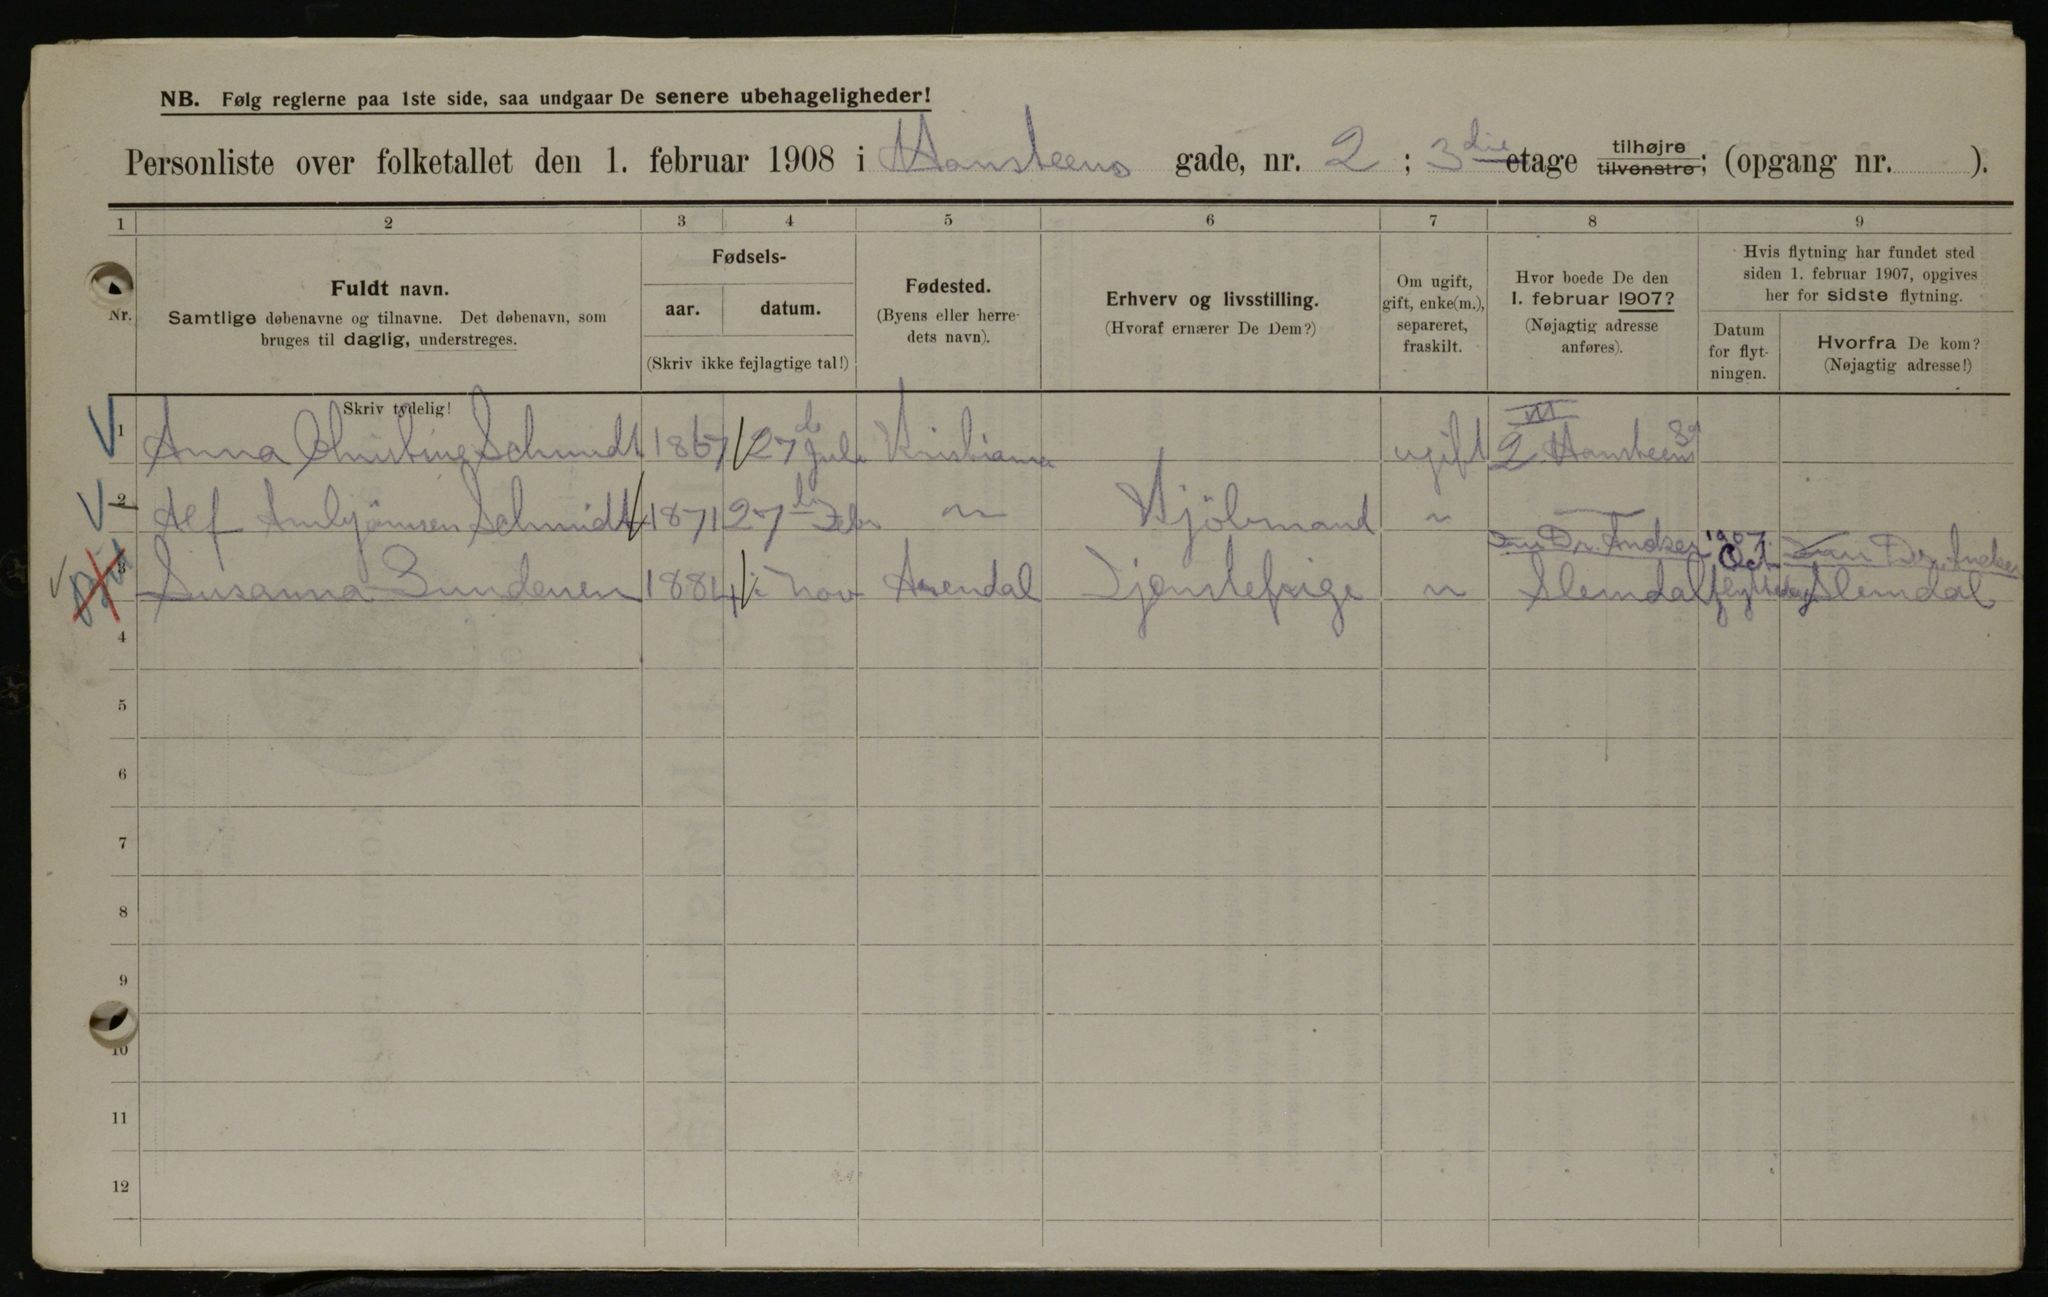 NB. Følg reglerne paa 1ste side, saa undgaar De senere ubehageligheder!
Personliste over folketallet den 1. februar 1908 i Hansteens gade, nr. 2 ; 3die etage tilhøjre tilvenstre; (opgang nr. ).
1 2 3 4 5 6 7 8 9
Nr.
Fuldt navn.
Samtlige døbenavne og tilnavne. Det døbenavn, som
bruges til daglig, understreges.
Fødsels-
aar. datum.
(Skriv ikke fejlagtige tal!)
Fødested.
(Byens eller herre-
dets navn).
Erhverv og livsstilling.
(Hvoraf ernærer De Dem?)
Om ugift,
gift, enke(m.),
separeret,
fraskilt.
Hvor boede De den
1. februar 1907?
(Nøjagtig adresse
anføres).
Hvis flytning har fundet sted
siden 1. februar 1907, opgives
her for sidste flytning.
Datum
for flyt-
ningen.
Hvorfra De kom?
(Nøjagtig adresse!)
Skriv tydelig!
1 Anna Christine Schmidt 1867 27 Juli Kristiania ugift 2 Hansteens III
2 Alf Arnbjörnsen Schmidt 1871 27 Febr " Kjöbmand "
3 Susanna Gundersen 1884 Nov Arendal Tjenstefrige " Dr. Andersen Slemdal 1907 Oct flyttedag Dr. Andersen Slemdal
4
5
6
7
8
9
10
11
12